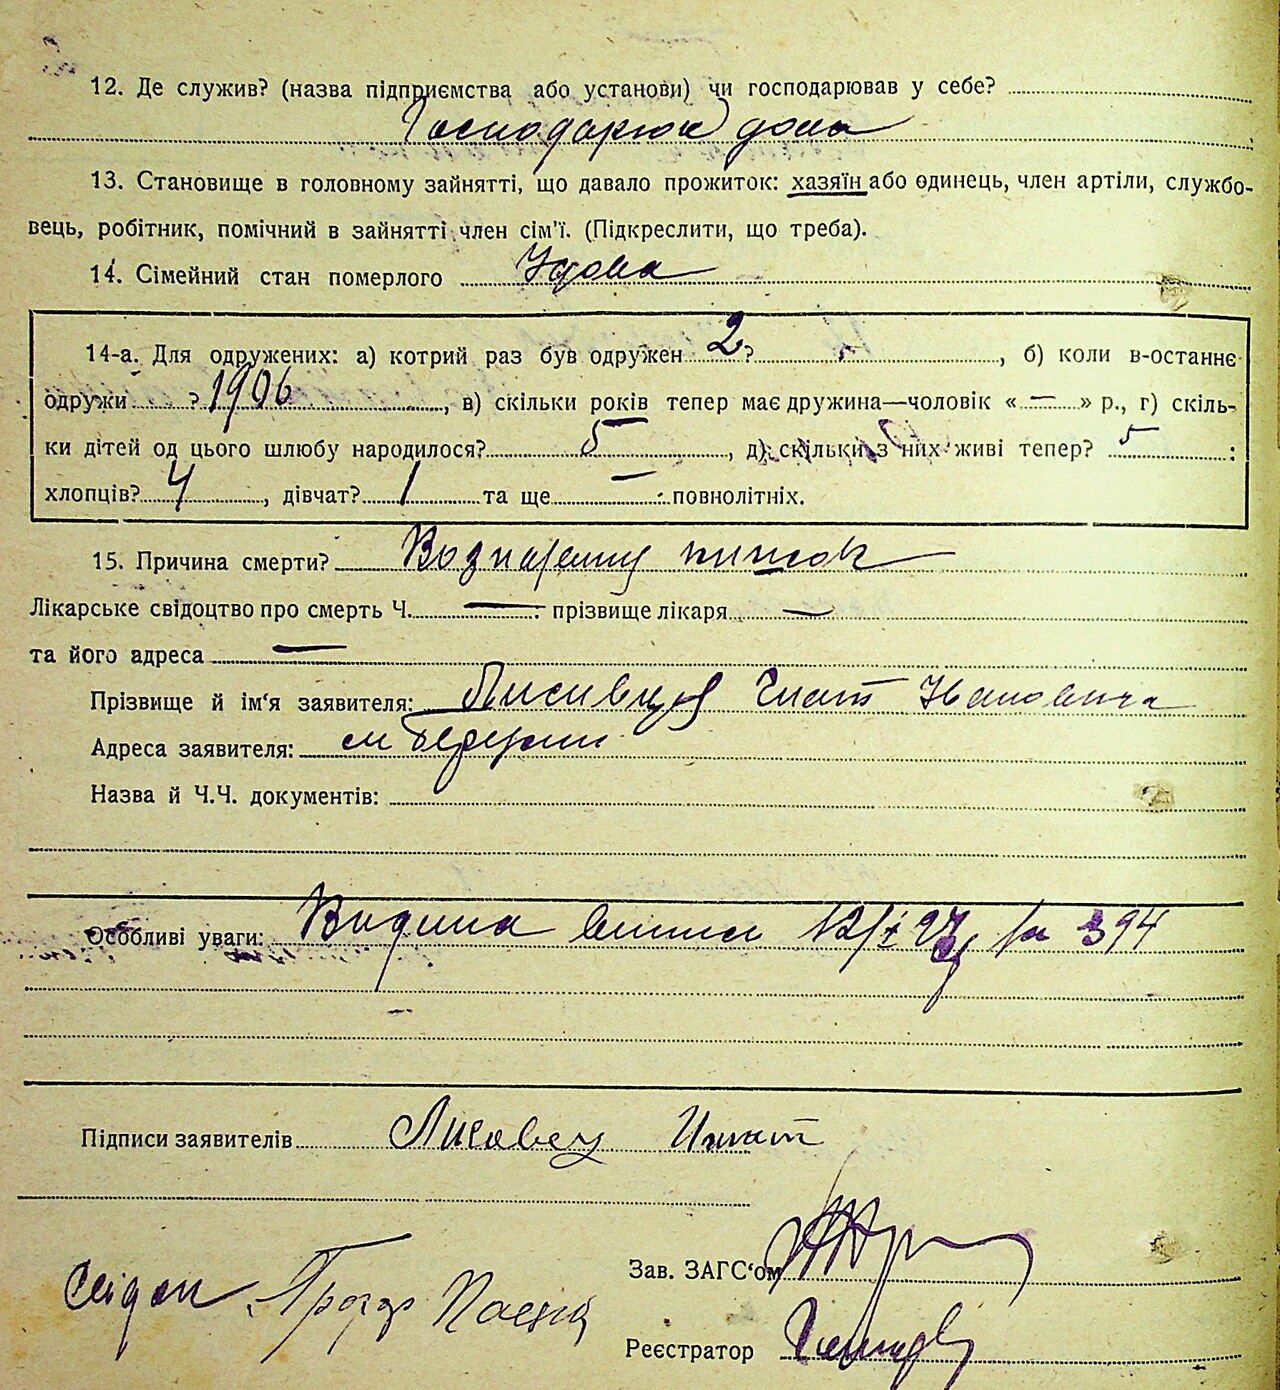 12. Де служив? (назва підприємства або установи) чи господарював у себе?
Господарює дома
13. Становище в головному зайнятті, що давало прожиток: хазяїн або одинець, член артіли, службо-
вець, робітник, помічний в зайнятті член сім'ї. (Підкреслити, що треба).
14. Сімейний стан померлого Удова
14-а. Для одружених: а) котрий раз був одружен 2?, б) коли в-останнє
одружи ? 1906, в) скільки років тепер має дружина—чоловік « — » р., г) скіль-
ки дітей од цього шлюбу народилося? 5, д) скільки з них живі тепер? 5:
хлопців? 4, дівчат? 1 та ще — повнолітніх.
15. Причина смерти?
Лікарське свідоцтво про смерть Ч. — прізвище лікаря —
та його адреса —
Прізвище й ім'я заявителя: Ивановича
Адреса заявителя: м
Назва й Ч.Ч. документів:
Особливі уваги: 12/X 27 за 394
Підписи заявителів Лисовец Игнат
Зав. ЗАГС'ом
свідок
Реєстратор